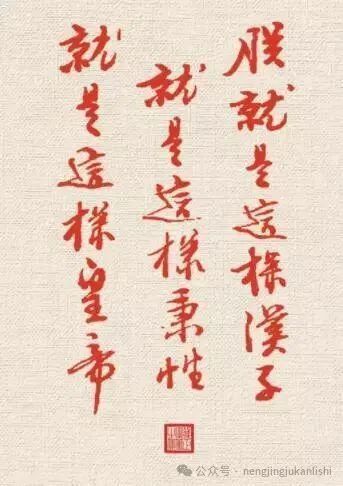 朕就是這樣漢子
就是這樣秉性
就是這樣皇帝
公众号 · nengjingjukanlishi